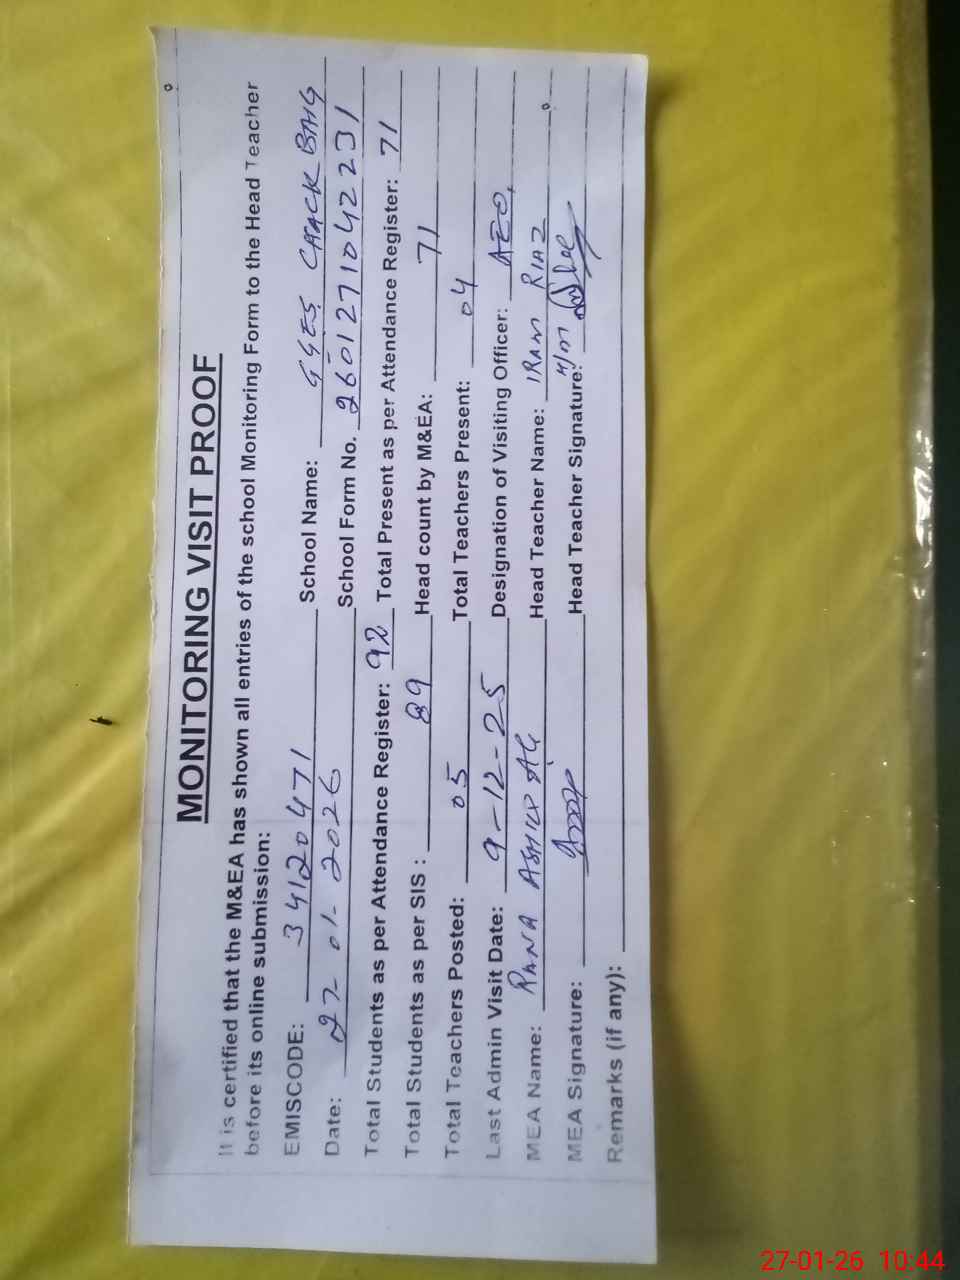 MONITORING VISIT PROOF
It is certified that the M&EA has shown all entries of the school Monitoring Form to the Head Teacher
before its online submission:
EMISCODE: 34120471 School Name: GGES CHACK BAHG
Date: 27-01-2026 School Form No. 2601271042231
Total Students as per Attendance Register: 92 Total Present as per Attendance Register: 71
Total Students as per SIS : 89 Head count by M&EA: 71
Total Teachers Posted: 05 Total Teachers Present: 04
Last Admin Visit Date: 9-12-25 Designation of Visiting Officer: AEO
MEA Name: RANA Head Teacher Name: IRAM RIAZ
MEA Signature: Head Teacher Signature:
Remarks (if any):
27-01-26 10:44